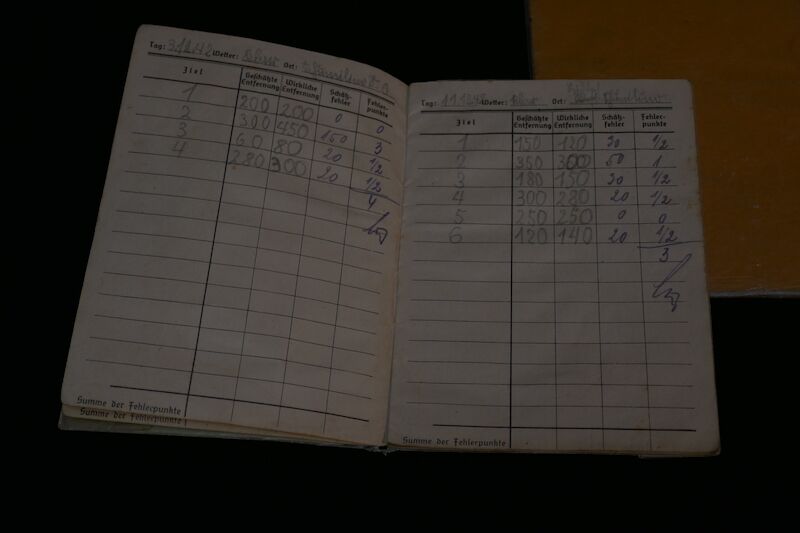 Tag: Wetter: Ort:
Ziel Geschätzte Entfernung Wirkliche Entfernung Schätz-fehler Fehler-punkte
1 200 200 0 0
2 300 450 150 3
3 60 80 20 1/2
4 280 300 20 1/2
4
Summe der Fehlerpunkte
Summe der Fehlerpunkte
Tag: Wetter: Ort:
Ziel Geschätzte Entfernung Wirkliche Entfernung Schätz-fehler Fehler-punkte
1 150 120 30 1/2
2 350 300 50 1
3 180 150 30 1/2
4 300 280 20 1/2
5 250 250 0 0
6 120 140 20 1/2
3
Summe der Fehlerpunkte